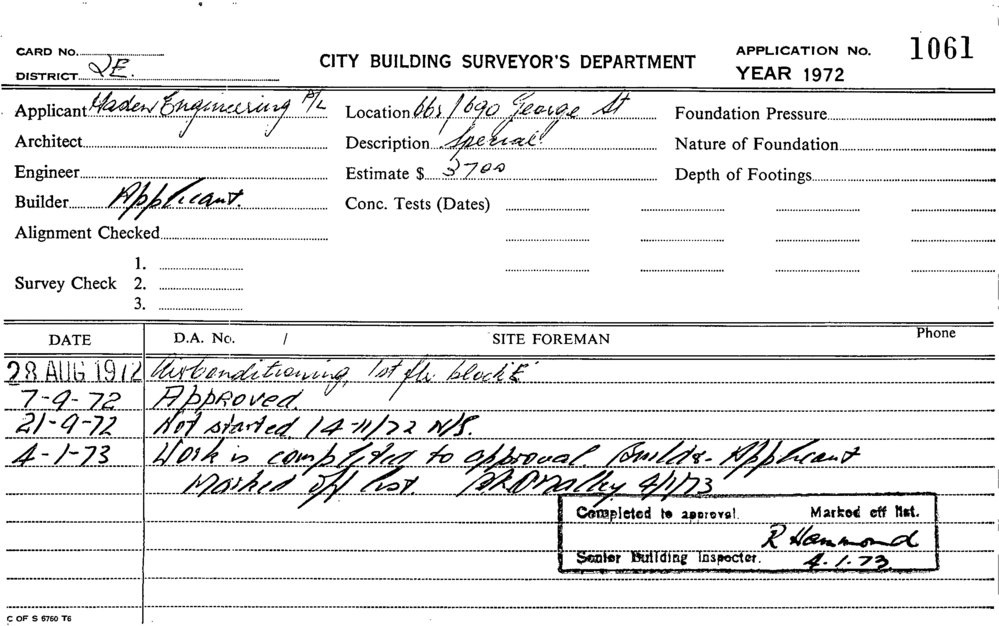 CARD No.
DISTRICT 2E.
CITY BUILDING SURVEYOR'S DEPARTMENT
APPLICATION No. 1061
YEAR 1972
Applicant Haden Engineering P/L
Location 668/690 George St
Foundation Pressure
Architect
Description Special
Nature of Foundation
Engineer
Estimate $ 3700
Depth of Footings
Builder Applicant.
Conc. Tests (Dates)
Alignment Checked
Survey Check
1.
2.
3.
DATE D.A. No. / SITE FOREMAN Phone
28 AUG 1972 Airconditioning, 1st flr block E
7-9-72 Approved.
21-9-72 Not started. 14-11/72 N/S.
4-1-73 Work is completed to approval. Builds - Applicant
Marked off list. 4/1/73
Completed to approval. Marked off list.
R Hammond
Senior Building Inspector. 4.1.73
C OF S 6760 T6